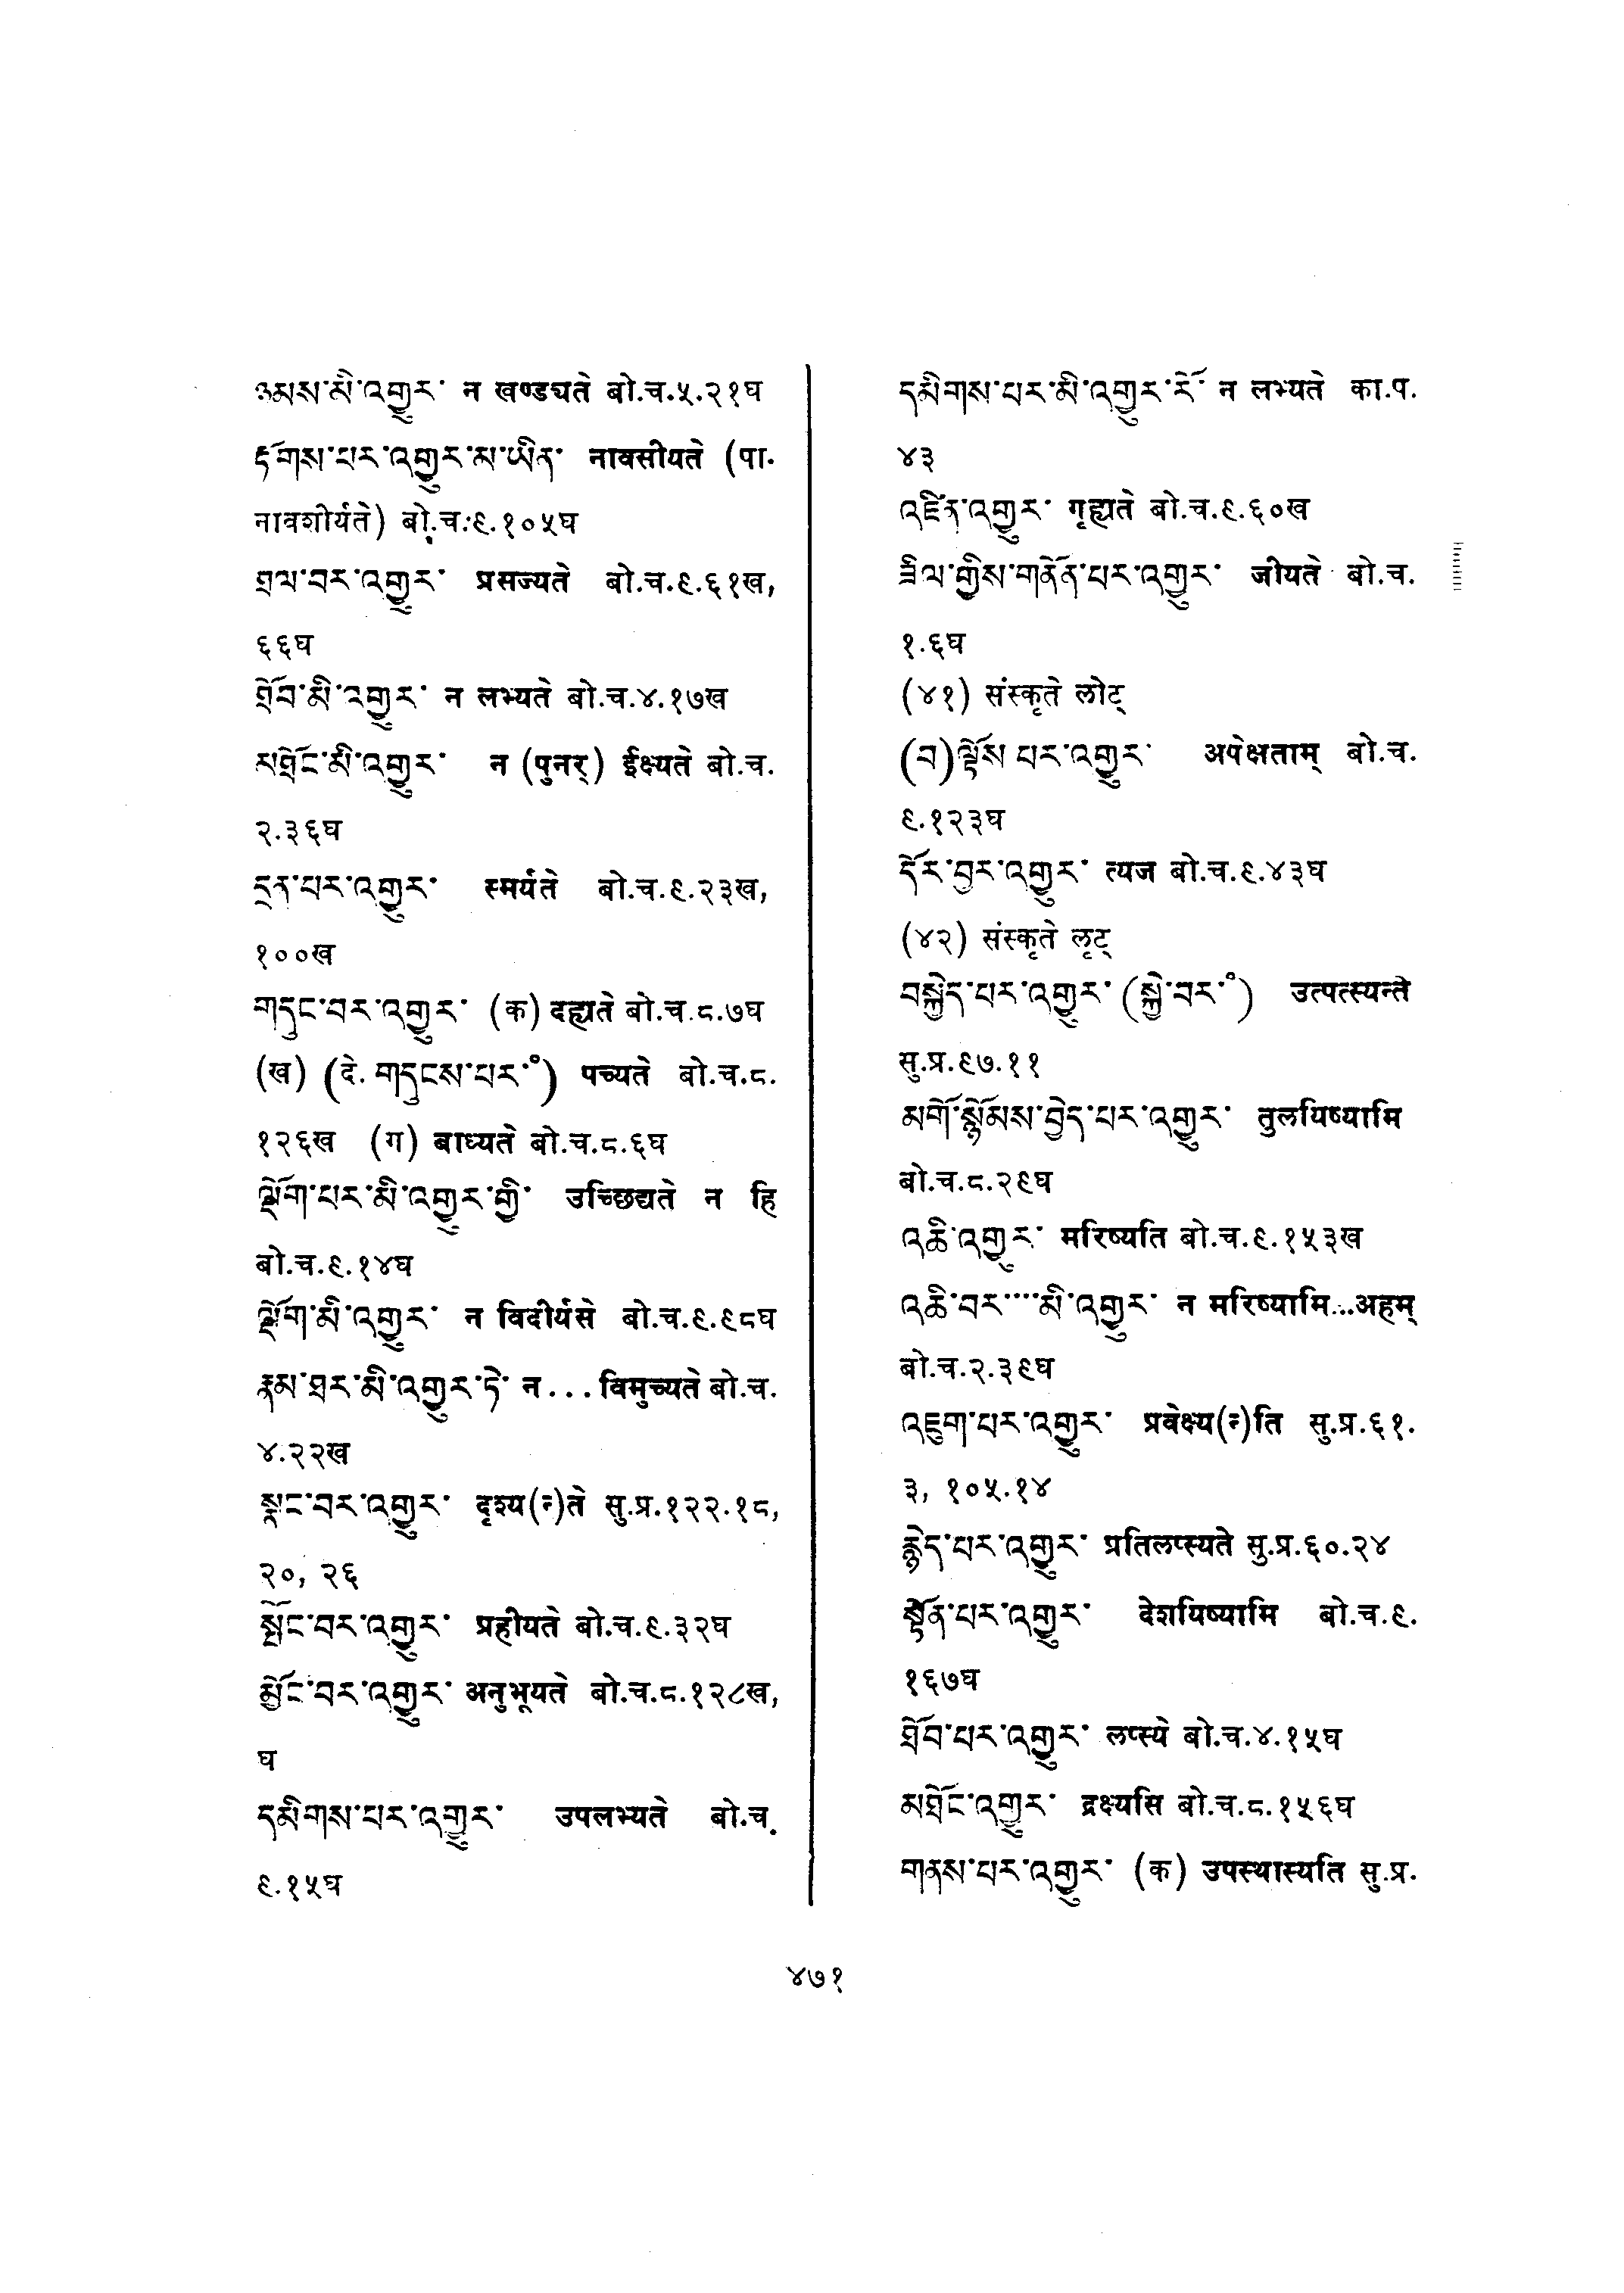 ཉམས་མི་འགྱུར་ न खण्डचते बो.च.५.२१घ
ཏོགས་པར་འགྱུར་མ་ཡིན་ नावसीयते (पा.
नावशीर्यते) बो.च.९.१०५घ
ཐལ་བར་འགྱུར་ प्रसज्यते बो.च.९.६१ख,
६६घ
ཐོབ་མི་འགྱུར་ न लभ्यते बो.च.४.१७ख
མཐོང་མི་འགྱུར་ न (पुनर्) ईक्ष्यते बो.च.
२.३६घ
དྲན་པར་འགྱུར་ स्मर्यते बो.च.९.२३ख,
१००ख
གདུང་བར་འགྱུར་ (क) दह्यते बो.च.८.७घ
(ख) (दे. གདུངས་པར་॰) पच्यते बो.च.८.
१२६ख (ग) बाध्यते बो.च.८.६घ
ལྡོག་པར་མི་འགྱུར་གྱི་ उच्छिद्यते न हि
बो.च.९.१४घ
ལྡོག་མི་འགྱུར་ न विदीर्यसे बो.च.९.९८घ
རྣམ་ཐར་མི་འགྱུར་ཏེ་ न...विमुच्यते बो.च.
४.२२ख
སྣང་བར་འགྱུར་ दृश्य(न्)ते सु.प्र.१२२.१८,
२०, २६
སྤོང་བར་འགྱུར་ प्रहीयते बो.च.९.३२घ
མྱོང་བར་འགྱུར་ अनुभूयते बो.च.८.१२८ख,
घ
དམིགས་པར་འགྱུར་ उपलभ्यते बो.च.
९.१५घ
དམིགས་པར་མི་འགྱུར་རོ་ न लभ्यते का.प.
४३
འཛིན་འགྱུར་ गृह्यते बो.च.९.६०ख
ཟིལ་གྱིས་གནོན་པར་འགྱུར་ जीयते बो.च.
१.६घ
(४१) संस्कृते लोट्
(བ)ལྟོས་པར་འགྱུར་ अपेक्षताम् बो.च.
९.१२३घ
དོར་བུར་འགྱུར་ त्यज बो.च.९.४३घ
(४२) संस्कृते लृट्
བསྐྱེད་པར་འགྱུར་ (སྐྱེ་བར་॰) उत्पत्स्यन्ते
सु.प्र.९७.११
མགོ་སྙོམས་བྱེད་པར་འགྱུར་ तुलयिष्यामि
बो.च.८.२९घ
འཆི་འགྱུར་ मरिष्यति बो.च.९.१५३ख
འཆི་བར་...མི་འགྱུར་ न मरिष्यामि...अहम्
बो.च.२.३९घ
འཇུག་པར་འགྱུར་ प्रवेक्ष्य(न्)ति सु.प्र.६१.
३, १०५.१४
རྙེད་པར་འགྱུར་ प्रतिलप्स्यते सु.प्र.६०.२४
སྟོན་པར་འགྱུར་ देशयिष्यामि बो.च.९.
१६७घ
ཐོབ་པར་འགྱུར་ लप्स्ये बो.च.४.१५घ
མཐོང་འགྱུར་ द्रक्ष्यसि बो.च.८.१५६घ
གནས་པར་འགྱུར་ (क) उपस्थास्यति सु.प्र.
४७१